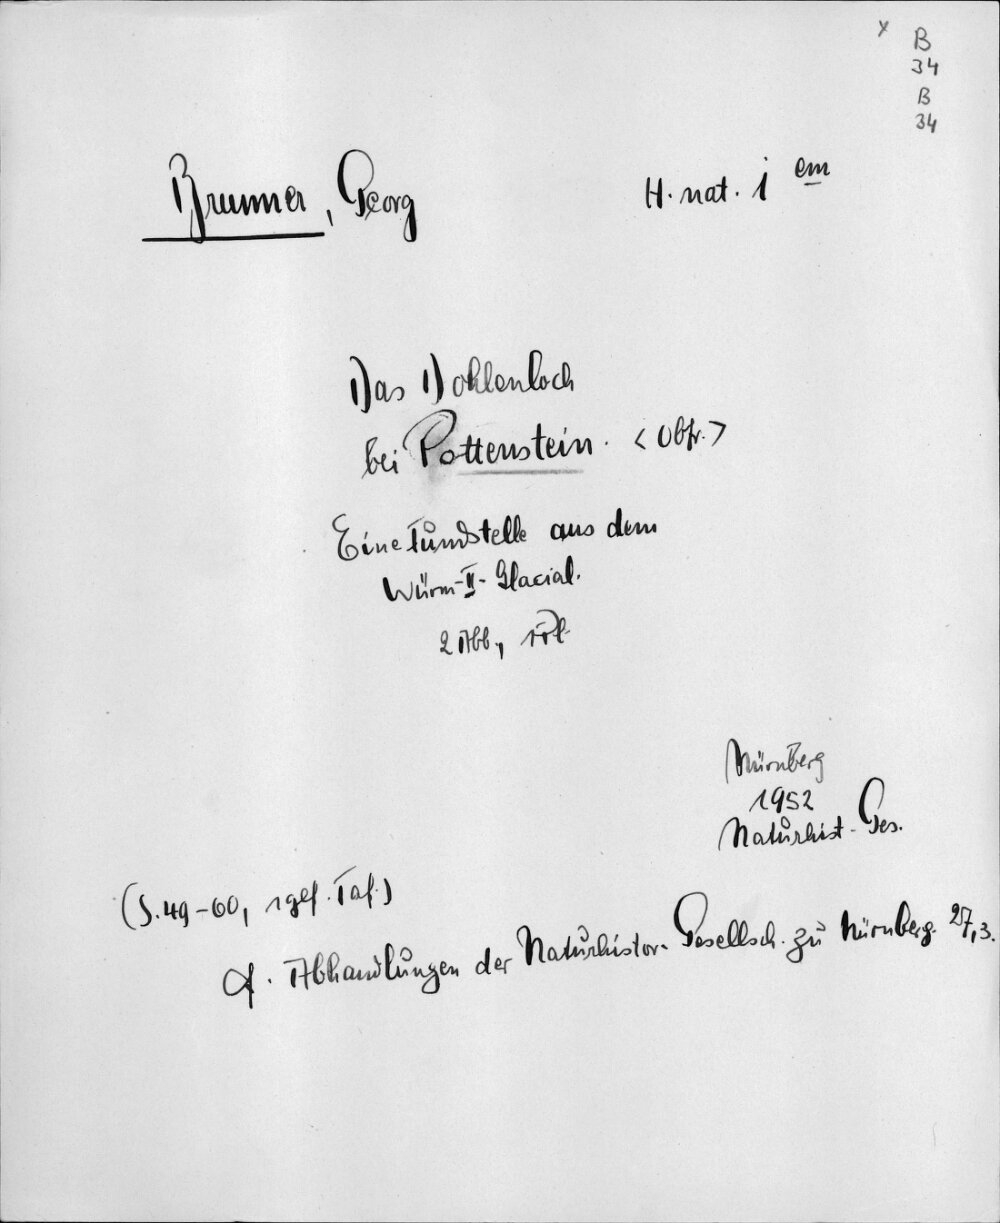 x B
34
B
34
Brunner, Georg
H. nat. i em
Das Dohlenloch
bei Pottenstein. <Obfr.>
Eine Fundstelle aus dem
Würm-II-Glacial.
2 Abb.,
Nürnberg
1952
Naturhist. Ges.
(S. 49-60, 1 gef. Taf.)
Abhandlungen der Naturhistor. Gesellsch. zu Nürnberg. 27,3.